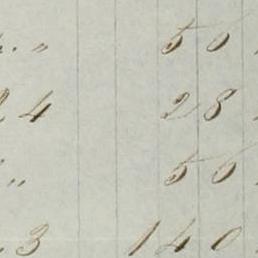 . " 56
24 28
" 56
. 3 140